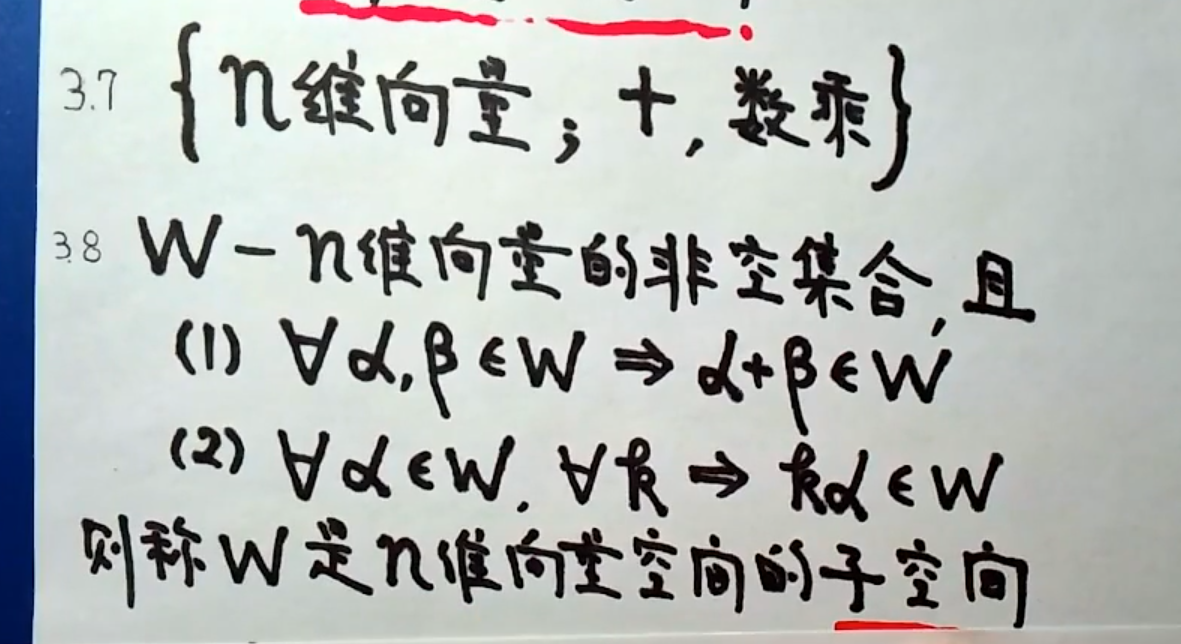 3.7 {n维向量; +, 数乘}
3.8 W-n维向量的非空集合, 且
(1) ∀α,β∈W ⇒ α+β∈W
(2) ∀α∈W, ∀k ⇒ kα∈W
则称W是n维向量空间的子空间